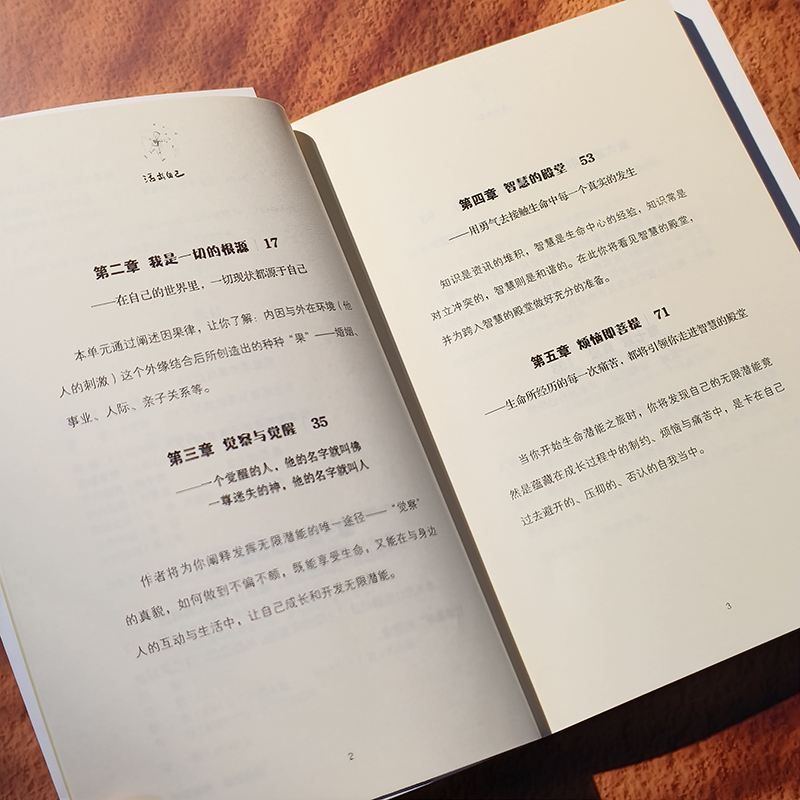 活出自己
第二章 我是一切的根源 17
——在自己的世界里，一切现状都源于自己
本单元通过阐述因果律，让你了解：内因与外在环境（他
人的刺激）这个外缘结合后所创造出的种种“果”——婚姻、
事业、人际、亲子关系等。
第三章 觉察与觉醒 35
——一个觉醒的人，他的名字就叫佛
一尊迷失的神，他的名字就叫人
作者将为你阐释发挥无限潜能的唯一途径——“觉察”
的真貌，如何做到不偏不颇，既能享受生命，又能在与身边
人的互动与生活中，让自己成长和开发无限潜能。
2
第四章 智慧的殿堂 53
——用勇气去接触生命中每一个真实的发生
知识是资讯的堆积，智慧是生命中心的经验，知识常是
对立冲突的，智慧则是和谐的。在此你将看见智慧的殿堂，
并为跨入智慧的殿堂做好充分的准备。
第五章 烦恼即菩提 71
——生命所经历的每一次痛苦，都将引领你走进智慧的殿堂
当你开始生命潜能之旅时，你将发现自己的无限潜能竟
然是蕴藏在成长过程中的制约、烦恼与痛苦中，是卡在自己
过去避开的、压抑的、否认的自我当中。
3